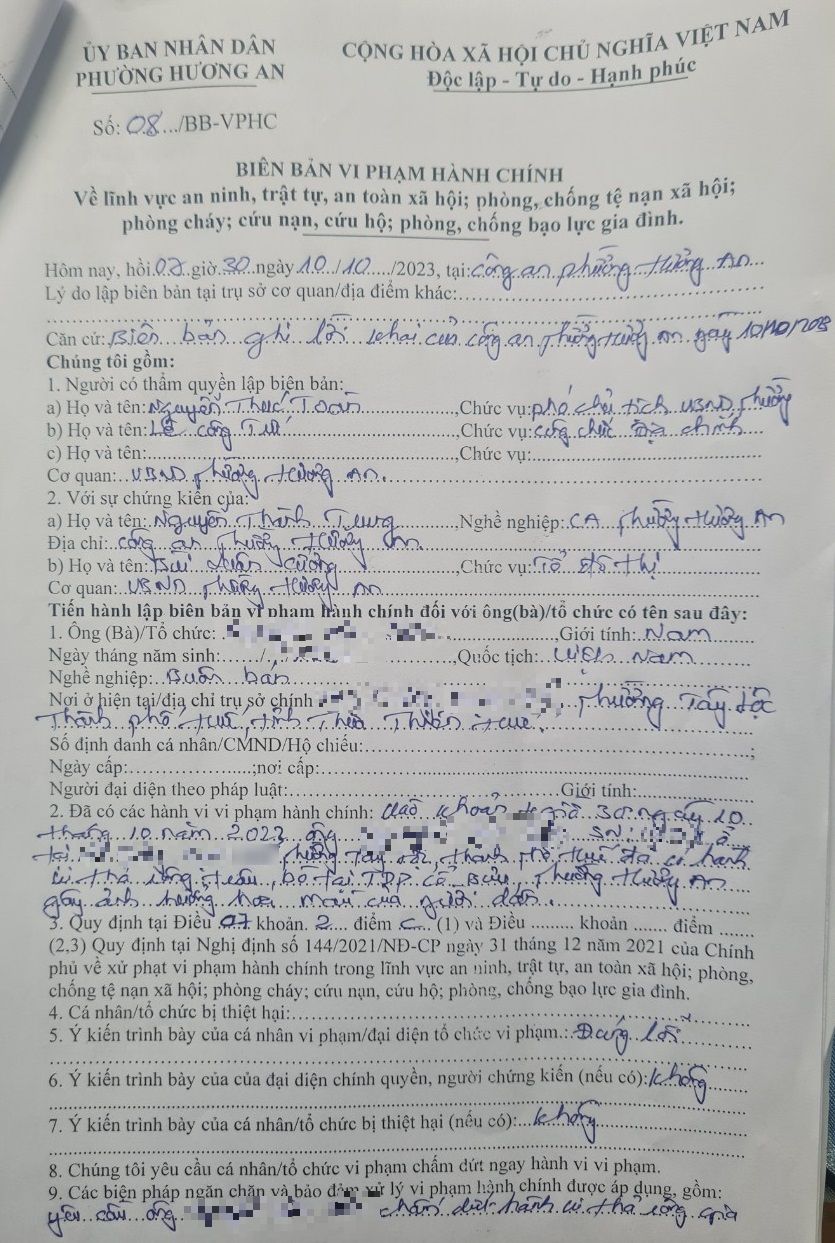 ỦY BAN NHÂN DÂN
PHƯỜNG HƯƠNG AN
CỘNG HÒA XÃ HỘI CHỦ NGHĨA VIỆT NAM
Độc lập - Tự do - Hạnh phúc
Số: 08.../BB-VPHC
BIÊN BẢN VI PHẠM HÀNH CHÍNH
Về lĩnh vực an ninh, trật tự, an toàn xã hội; phòng, chống tệ nạn xã hội;
phòng cháy; cứu nạn, cứu hộ; phòng, chống bạo lực gia đình.
Hôm nay, hồi.07.giờ.30.ngày.10../10..../2023, tại: công an phường Hương An...
Lý do lập biên bản tại trụ sở cơ quan/địa điểm khác:
Căn cứ: Biên bản ghi lời khai của công an phường Hương An ngày 10/10/2023
Chúng tôi gồm:
1. Người có thẩm quyền lập biên bản:
a) Họ và tên: Nguyễn Thúc Toàn, Chức vụ: phó chủ tịch UBND phường
b) Họ và tên: Lê Công Tuý, Chức vụ: công chức Địa chính
c) Họ và tên:, Chức vụ:
Cơ quan: UBND phường Hương An.
2. Với sự chứng kiến của:
a) Họ và tên: Nguyễn Thành Trung, Nghề nghiệp: CA phường Hương An
Địa chỉ: công an phường Hương An.
b) Họ và tên: Bùi Xuân Cường, Chức vụ: Tổ Đô thị
Cơ quan: UBND phường Hương An
Tiến hành lập biên bản vi phạm hành chính đối với ông(bà)/tổ chức có tên sau đây:
1. Ông (Bà)/Tổ chức: , Giới tính: Nam
Ngày tháng năm sinh:....../, Quốc tịch: Việt Nam
Nghề nghiệp: Buôn bán
Nơi ở hiện tại/địa chỉ trụ sở chính , phường Tây Lộc
Thành phố Huế, tỉnh Thừa Thiên Huế.
Số định danh cá nhân/CMND/Hộ chiếu:;
Ngày cấp:;nơi cấp:
Người đại diện theo pháp luật: Giới tính:
2. Đã có các hành vi vi phạm hành chính: Vào khoảng giờ 30 ngày 10
tháng 10 năm 2023 ông SN:
tại phường Tây Lộc, thành phố Huế đã có hành
vi thả rông trâu, bò tại TDP Cổ Bưu, phường Hương An
gây ảnh hưởng hoa màu của người dân.
3. Quy định tại Điều 07 khoản. 2.... điểm c... (1) và Điều ......... khoản ....... điểm ......
(2,3) Quy định tại Nghị định số 144/2021/NĐ-CP ngày 31 tháng 12 năm 2021 của Chính
phủ về xử phạt vi phạm hành chính trong lĩnh vực an ninh, trật tự, an toàn xã hội; phòng,
chống tệ nạn xã hội; phòng cháy; cứu nạn, cứu hộ; phòng, chống bạo lực gia đình.
4. Cá nhân/tổ chức bị thiệt hại:
5. Ý kiến trình bày của cá nhân vi phạm/đại diện tổ chức vi phạm.: Đúng lỗi
6. Ý kiến trình bày của của đại diện chính quyền, người chứng kiến (nếu có): không
7. Ý kiến trình bày của cá nhân/tổ chức bị thiệt hại (nếu có):... không
8. Chúng tôi yêu cầu cá nhân/tổ chức vi phạm chấm dứt ngay hành vi vi phạm.
9. Các biện pháp ngăn chặn và bảo đảm xử lý vi phạm hành chính được áp dụng, gồm:
yêu cầu ông chấm dứt hành vi thả rông gia